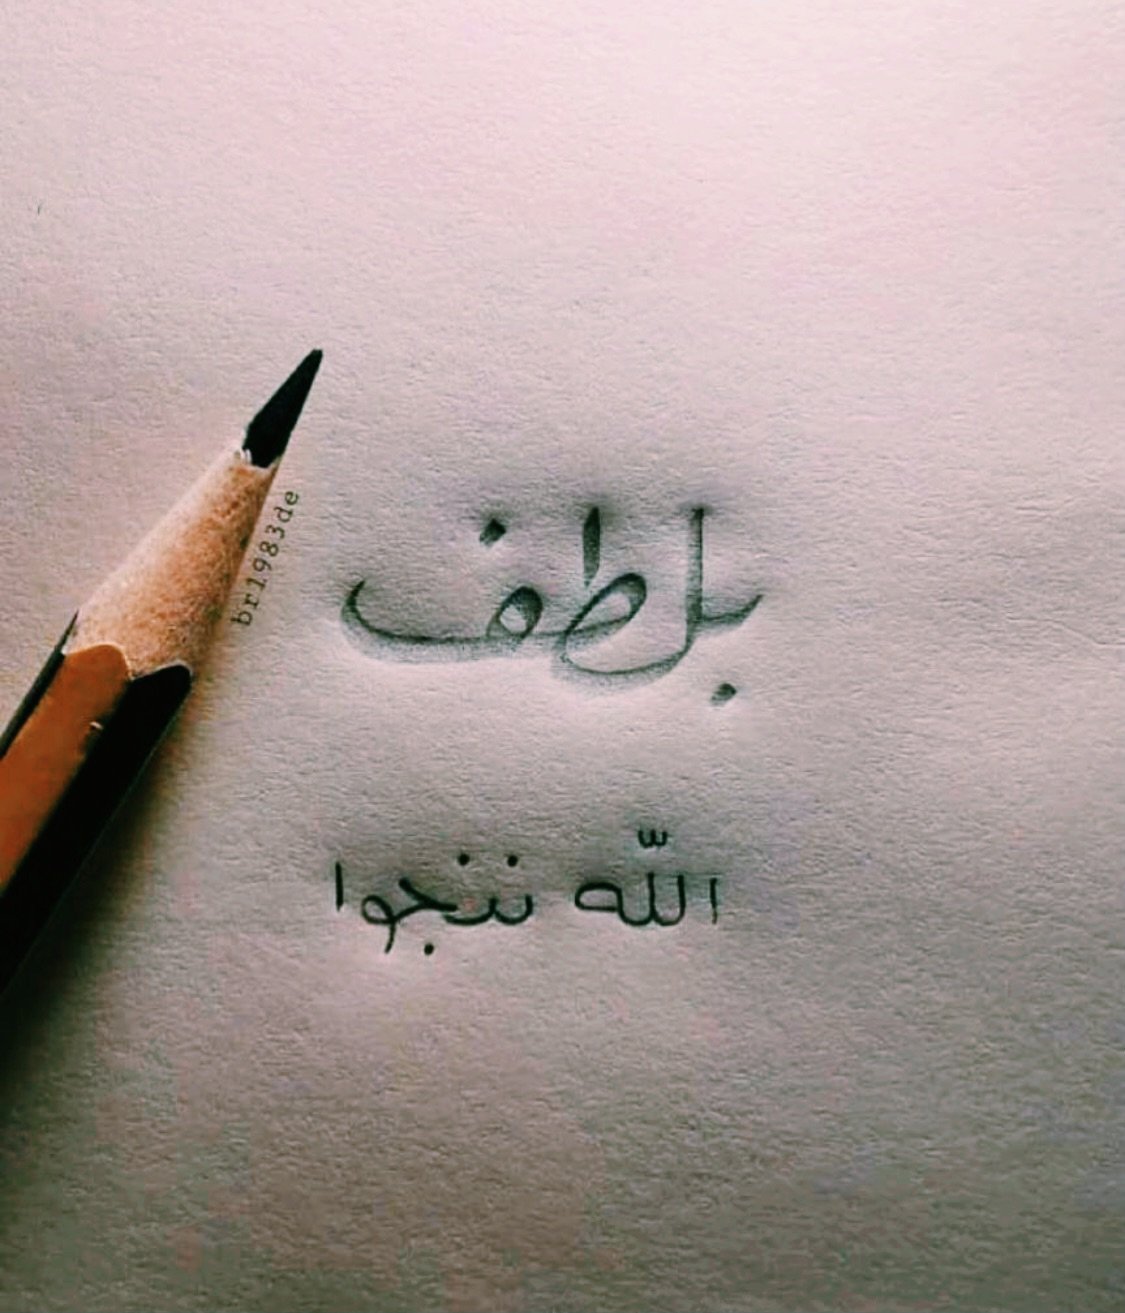 بلطف
اللّه ننجوا
br1983de